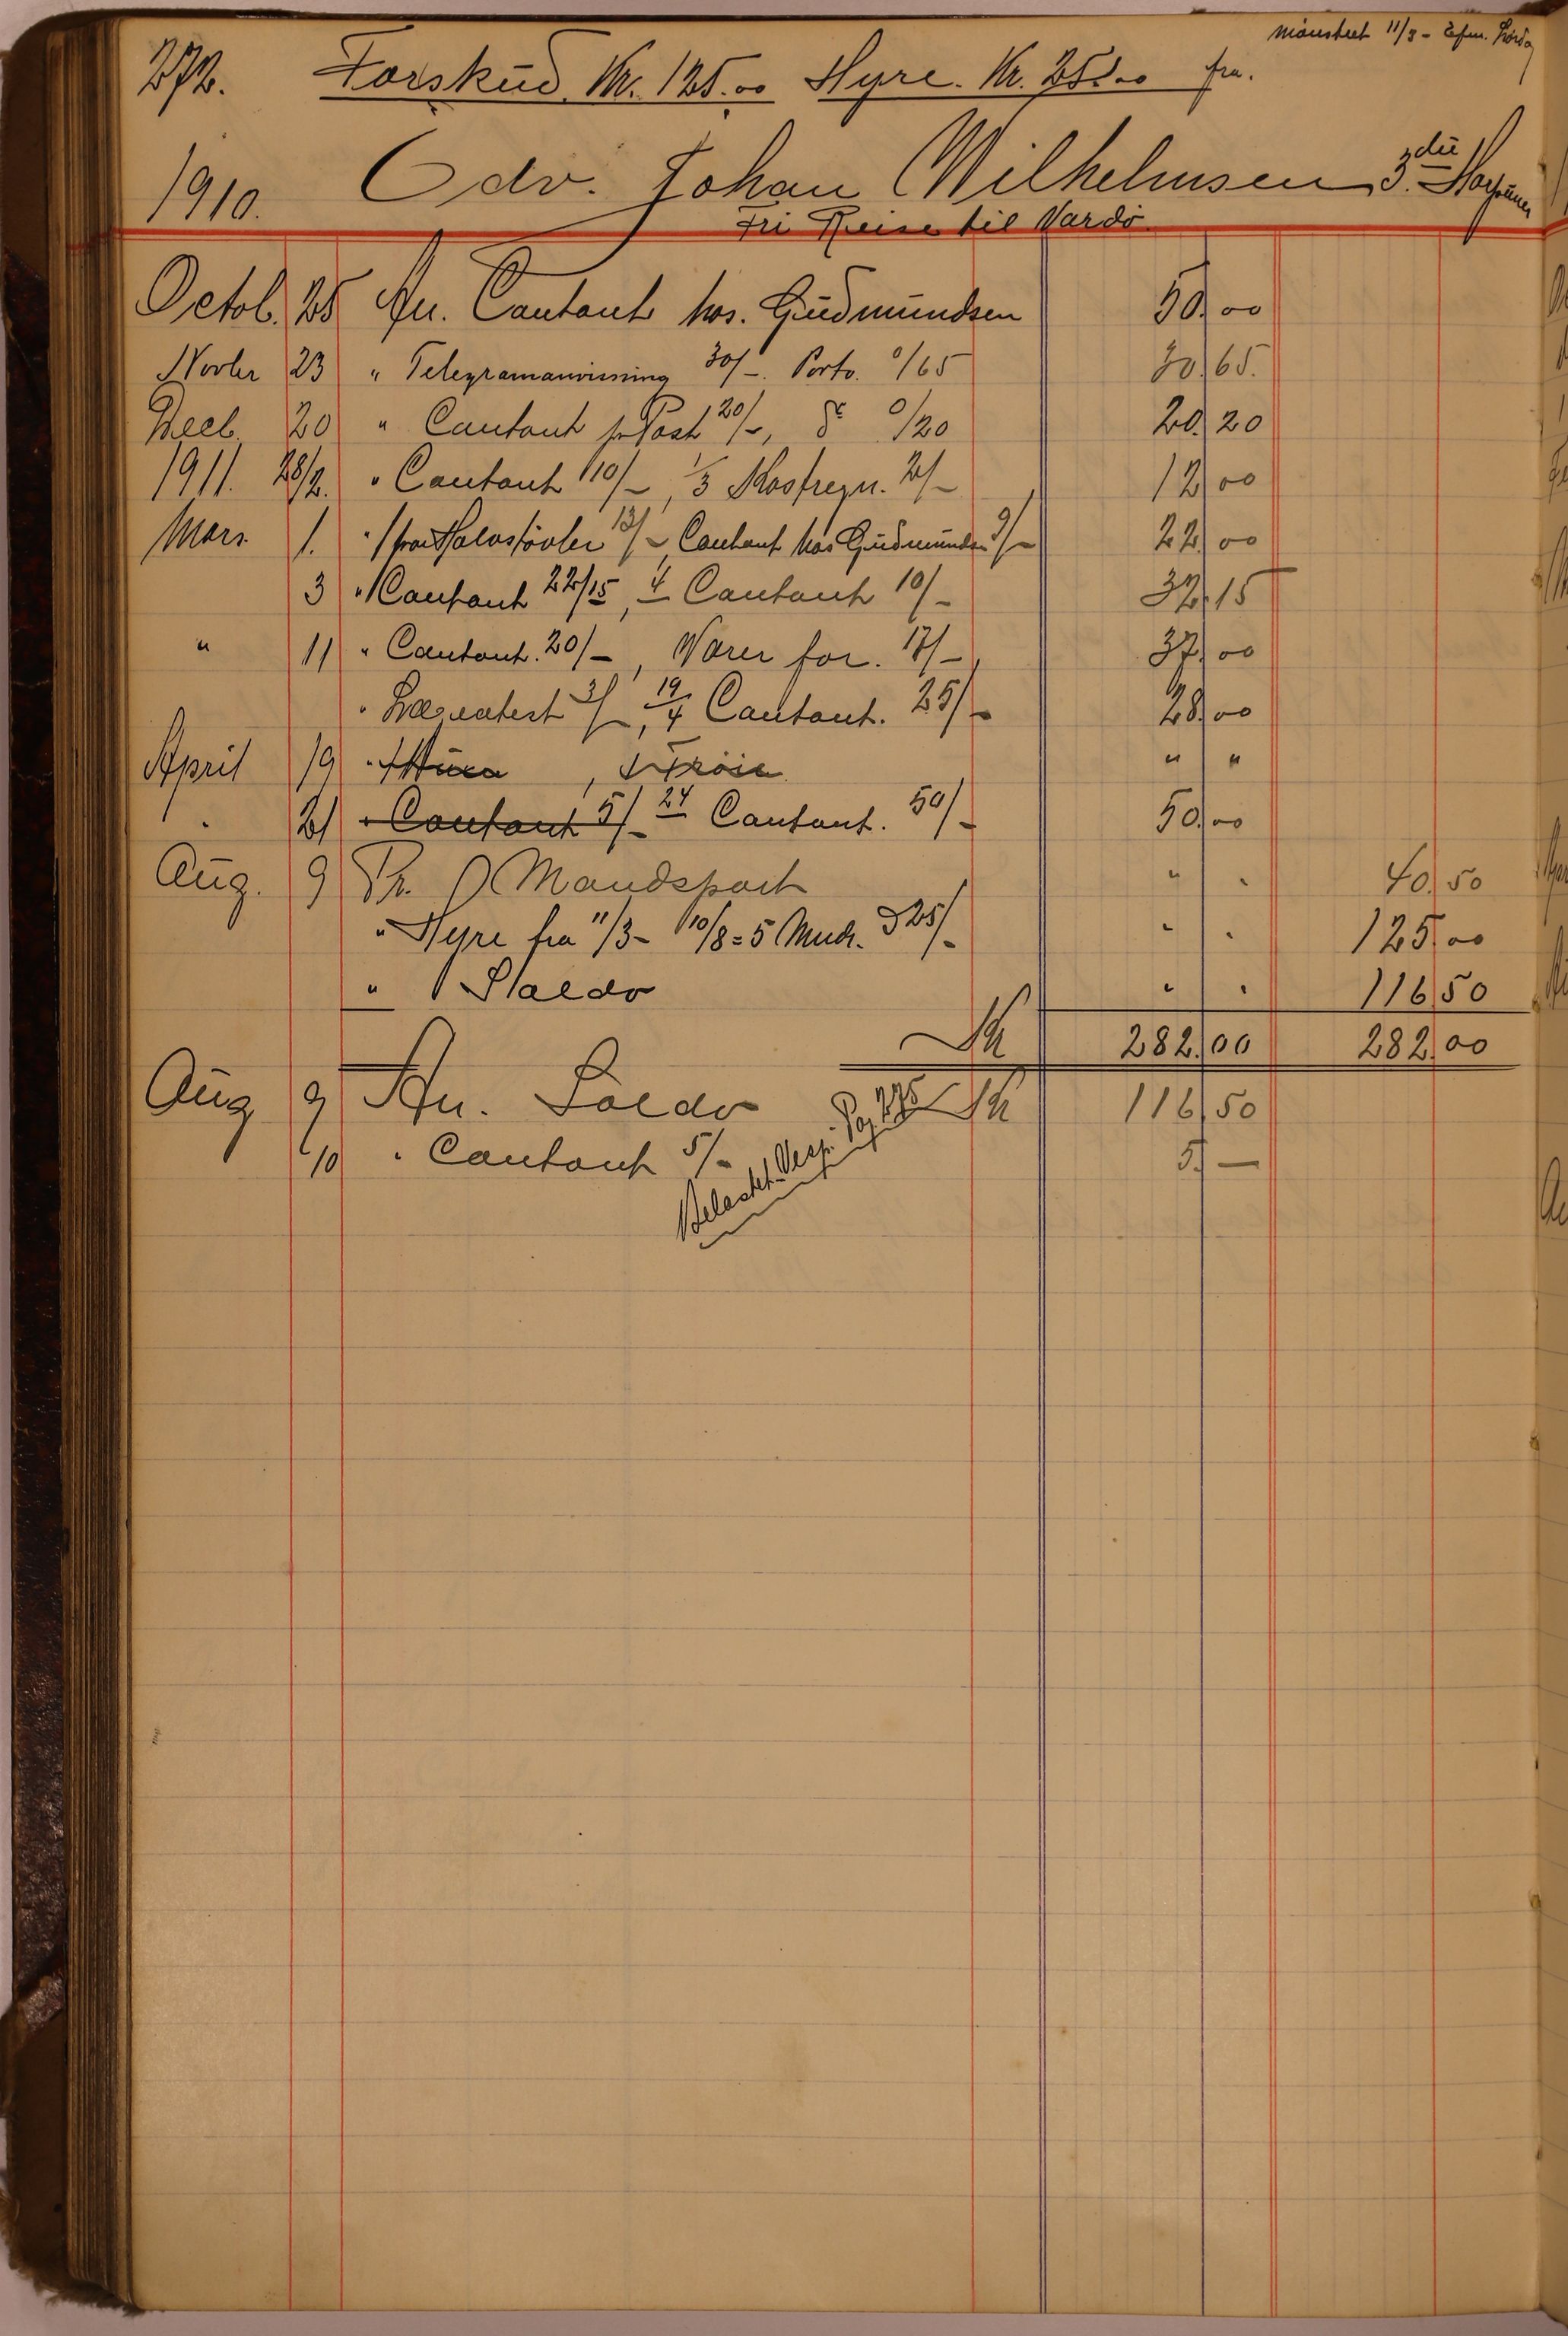 mönstret 11/3 - Efm.
272. Forskud. Kr. 125.00 Hyre. Kr. 25.00 fra.
1910. Edv. Johan Wilhelmsen 3die
Fri Reise til Vardö.
Octob. 25 An. Contant hos. Gudmundsen 50.00
Novbr 23 " Telegramanvisning 30/-. Porto. 0/65 30.65.
Decb. 20 " Contant pr Post 20/-, do 0/20 20.20
1911. 28/2. " Contant 10/-, 1/3 Kostregn. 2/- 12.00
Mars. 1. " 1 par Halvstövler 13/- Contant hos Gudmundsen 9/- 22.00
3 " Contant 22/15, 4 Contant 10/- 32.15
" 11 " Contant. 20/-, Varer for. 17/- 37.00
" Lægeatest 3/-, 19/4 Contant. 25/- 28.00
April 19 " 1 Huea, 1 Tröie " "
" 21 " Contant 5/- 24 Contant. 50/- 50.00
Aug. 9 Pr. Mandspart " " 40.50
" Hyre fra 11/3 - 10/8 = 5 Mndr. à 25/- " " 125.00
" Saldo " " 116.50
Kr 282.00 282.00
Aug 9 An. Saldo Kr 116.50
10 " Contant 5/- 5.—
Belastet Vesp. Pag 275